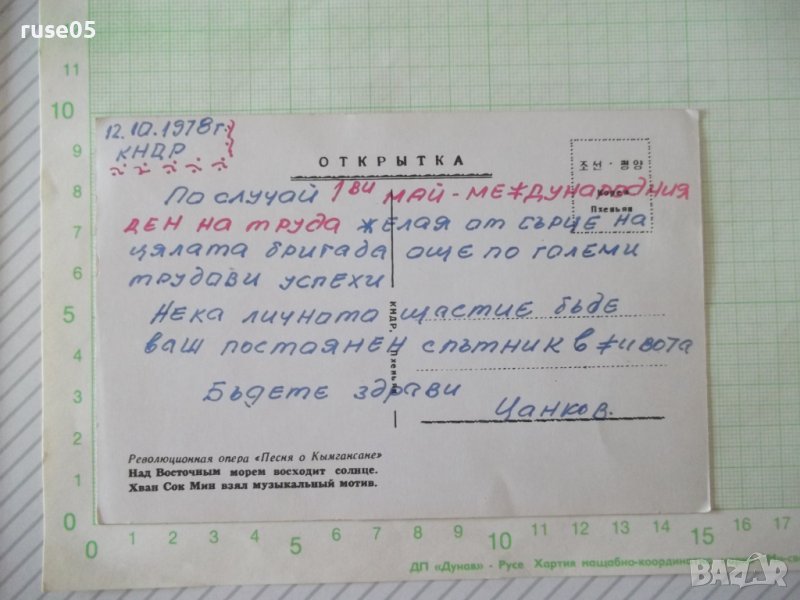 ruse05
12.10.1978 г.
КНДР
ОТКРЫТКА
조선·평양
Корея
Пхеньян
По случай 1ви МАЙ-МЕЖДУНАРОДНИЯ
ДЕН НА ТРУДА желая от сърце на
цялата бригада още по големи
трудави успехи
Нека личната щастие бъде
ваш постаянен спътник в живота
Бъдете здрави
Цанков.
КНДР, Пхеньян
Революционная опера «Песня о Кымгансане»
Над Восточным морем восходит солнце.
Хван Сок Мин взял музыкальный мотив.
11
10
9
8
7
6
5
4
3
2
1
0
0 1 2 3 4 5 6 7 8 9 10 11 12 13 14 15 16 17
ДП «Дунав» - Русе Хартия мащабно-координатна
BAZAR